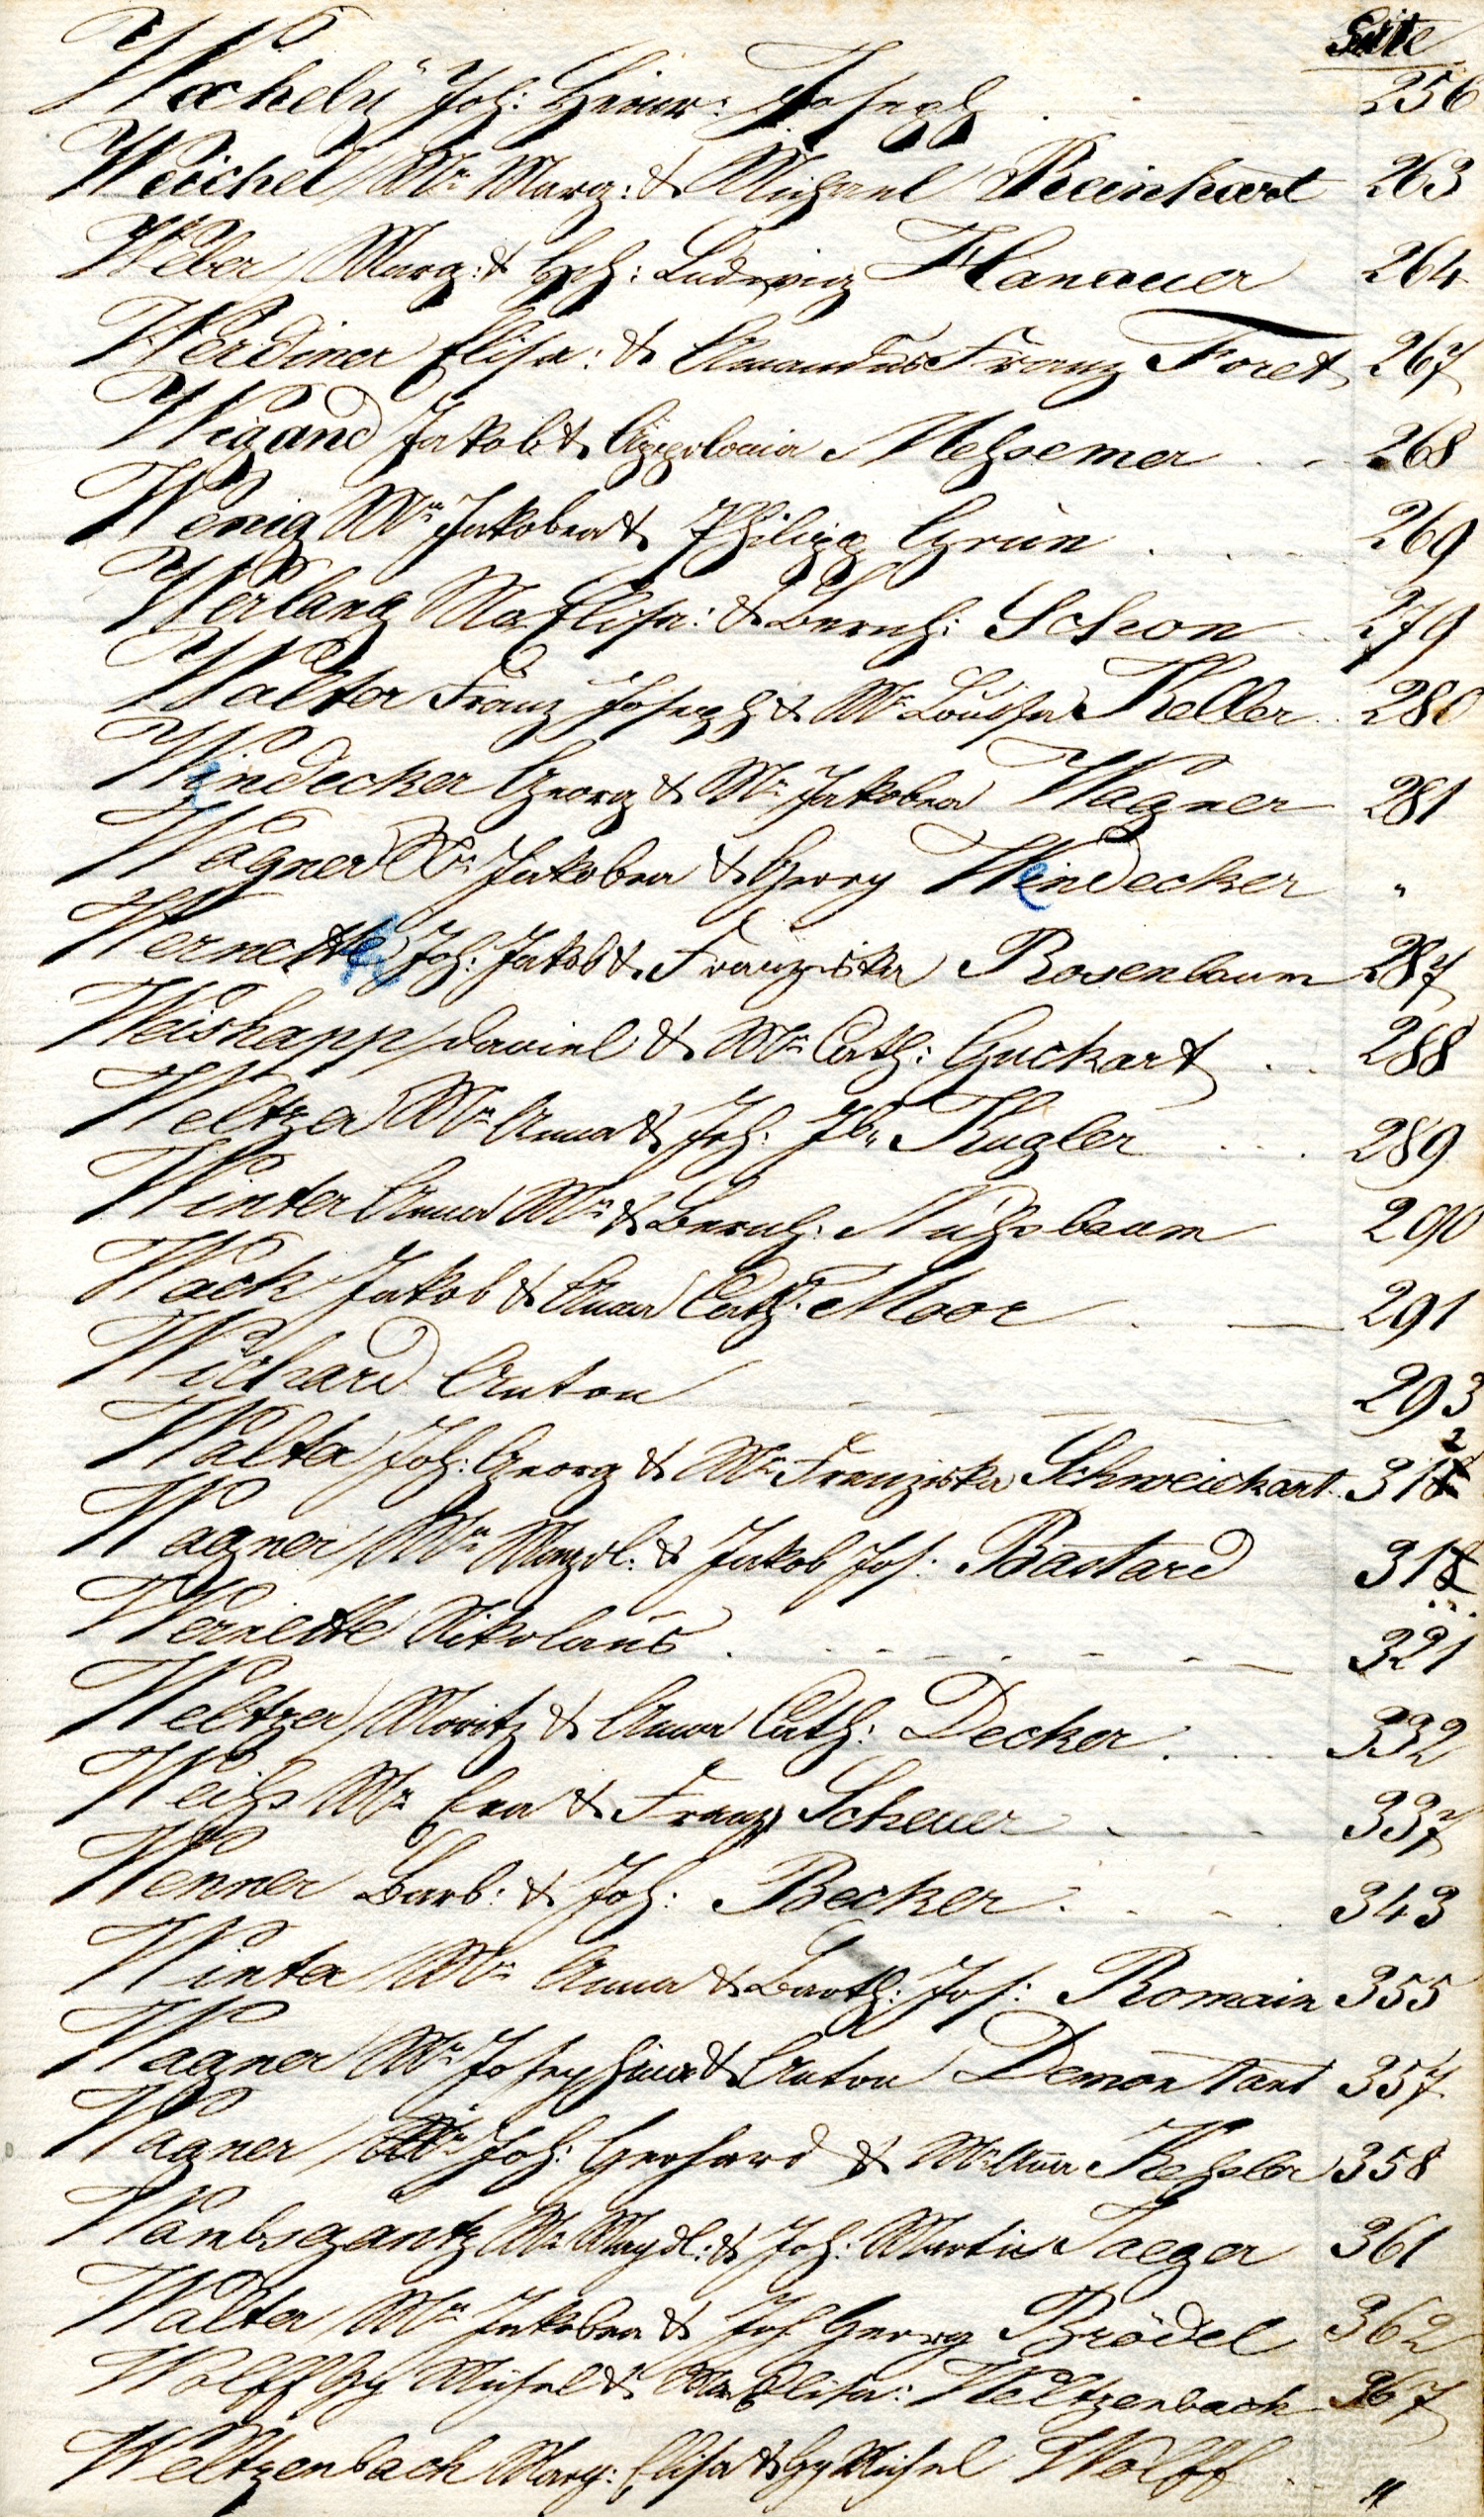 Seite
Wachely Joh: Heinr: Joseph 256
Weichel Ma Marg: & Michael Reinhart 263
Weber Marg: & Joh: Ludwig Hanauer 264
Werdiner Elisa: & Amandus Franz Foret 267
Wigand Jakob & Appolonia Meßemer 268
Wenig Ma Jakobea & Philipp Grün 269
Werlang Ma Elisa: & Bernh: Schon 279
Walter Franz Joseph & Ma Louisa Keller 280
Windecker Georg & Ma Jakobea Wagner 281
Wagner Ma Jakobea & Georg Windecker "
Wernette Joh: Jakob & Franziska Rosenbaum 287
Weishapp Daniel & Ma Cath: Guckart 288
Weltzer Ma Anna & Joh. Jb. Kugler 289
Winter Anna Ma & Bernh. Nußbaum 290
Wack Jakob & Anna Cath. Moor 291
Wichard Anton 293
Walter Joh: Georg & Ma Franziska Schweickart 312
Wagner Ma Magdl: & Jakob Jos. Bastard 318
Wernette Nikolaus 321
Weltzer Moritz & Anna Cath: Decker 332
Weiß Ma Eva & Franz Scheuer 337
Wenner Barb: & Joh: Becker 343
Winter Ma Anna & Barth: Jos: Romain 355
Wagner Ma Josephina & Anton Demontant 357
Wagner Joh: Gerhard & Ma Anna Keßler 358
Wambsgantz Ma Magdl: & Joh: Martin Jaeger 361
Walter Ma Jakobea & Jos Georg Brödel 362
Wolff Gg Michel & Ma Elisa: Weltzenbach 367
Weltzenbach Marg: Elisa & Gg Michel Wolff "